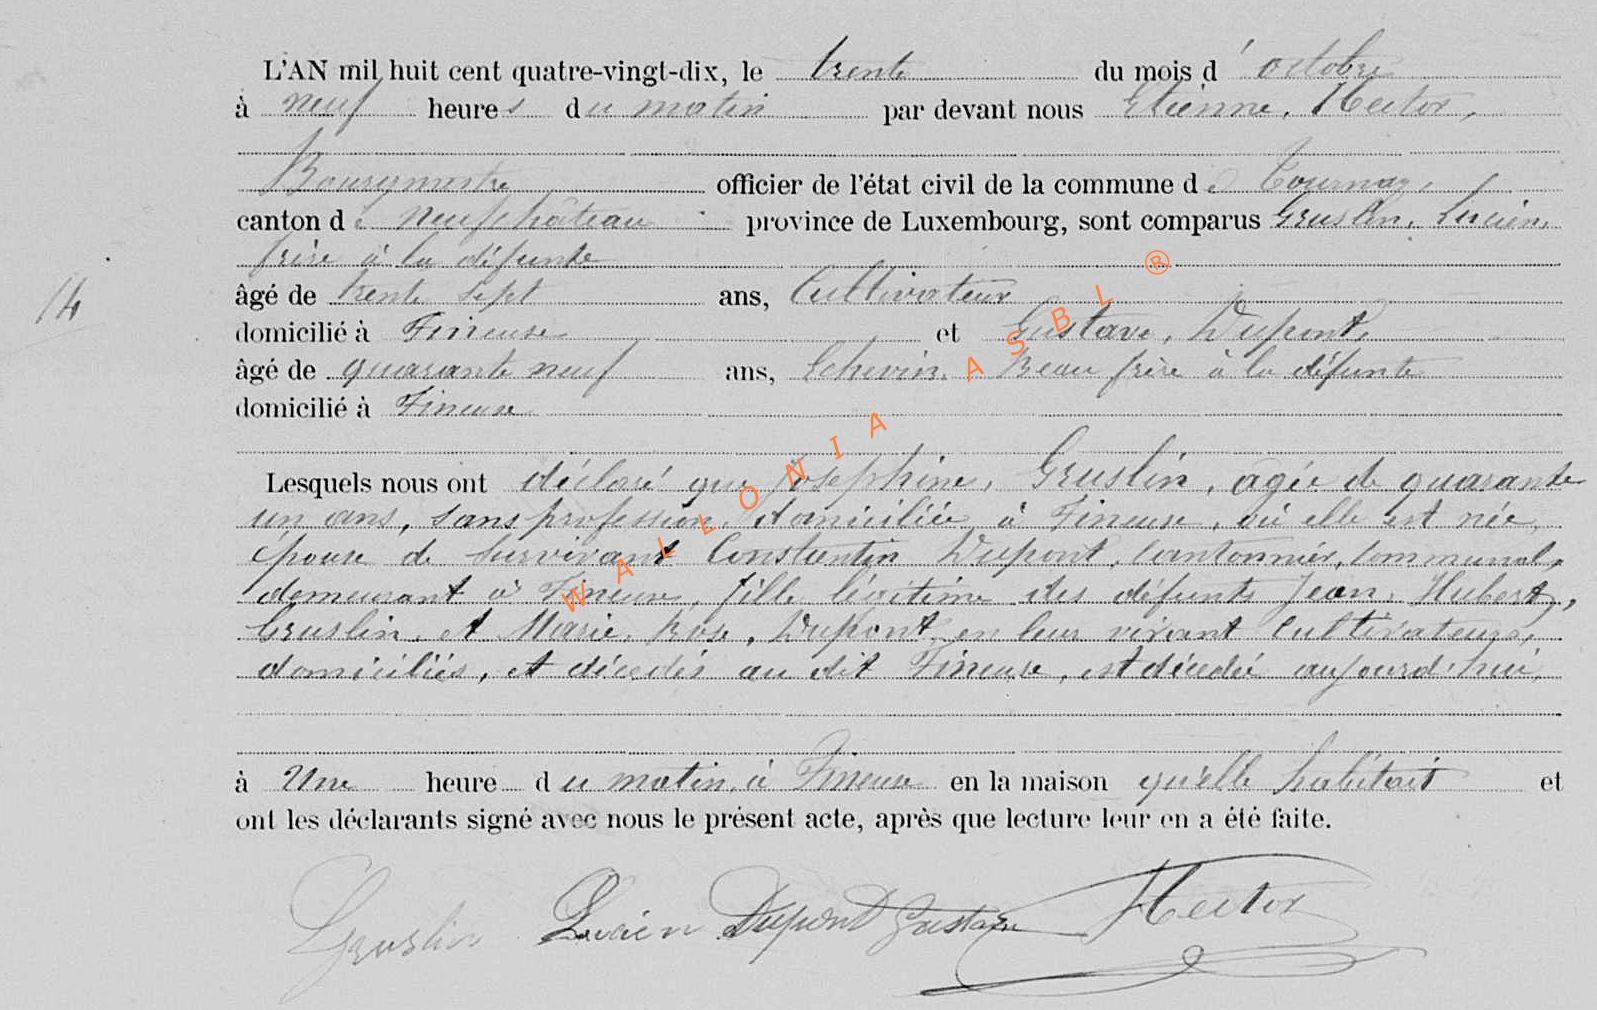 L'AN mil huit cent quatre-vingt-dix, le trente du mois d'octobre
à neuf heures du matin par devant nous Etienne, Hector,
Bourgmestre officier de l'état civil de la commune de Tournay,
canton de Neufchâteau province de Luxembourg, sont comparus Gruslin, Lucien,
frère à la défunte
14
âgé de trente sept ans, Cultivateur
domicilié à Fineuse et Gustave, Dupont,
âgé de quarante neuf ans, Echevin, Beau frère à la défunte
domicilié à Fineuse
Lesquels nous ont déclaré que Joséphine, Gruslin, agée de quarante
un ans, sans profession, domiciliée à Fineuse, où elle est née,
épouse de survivant Constantin Dupont, cantonnier, communal,
demeurant à Fineuse, fille légitime des défunts Jean, Hubert,
Gruslin, et Marie, Rose, Dupont, en leur vivant Cultivateurs,
domiciliés, et décedés au dit Fineuse, est décedée aujourd'hui,
à Une heure du matin, à Fineuse en la maison qu'elle habitait et
ont les déclarants signé avec nous le présent acte, après que lecture leur en a été faite.
Gruslin Lucien Dupont Gustave Hector
WALLONIA ASBL ®